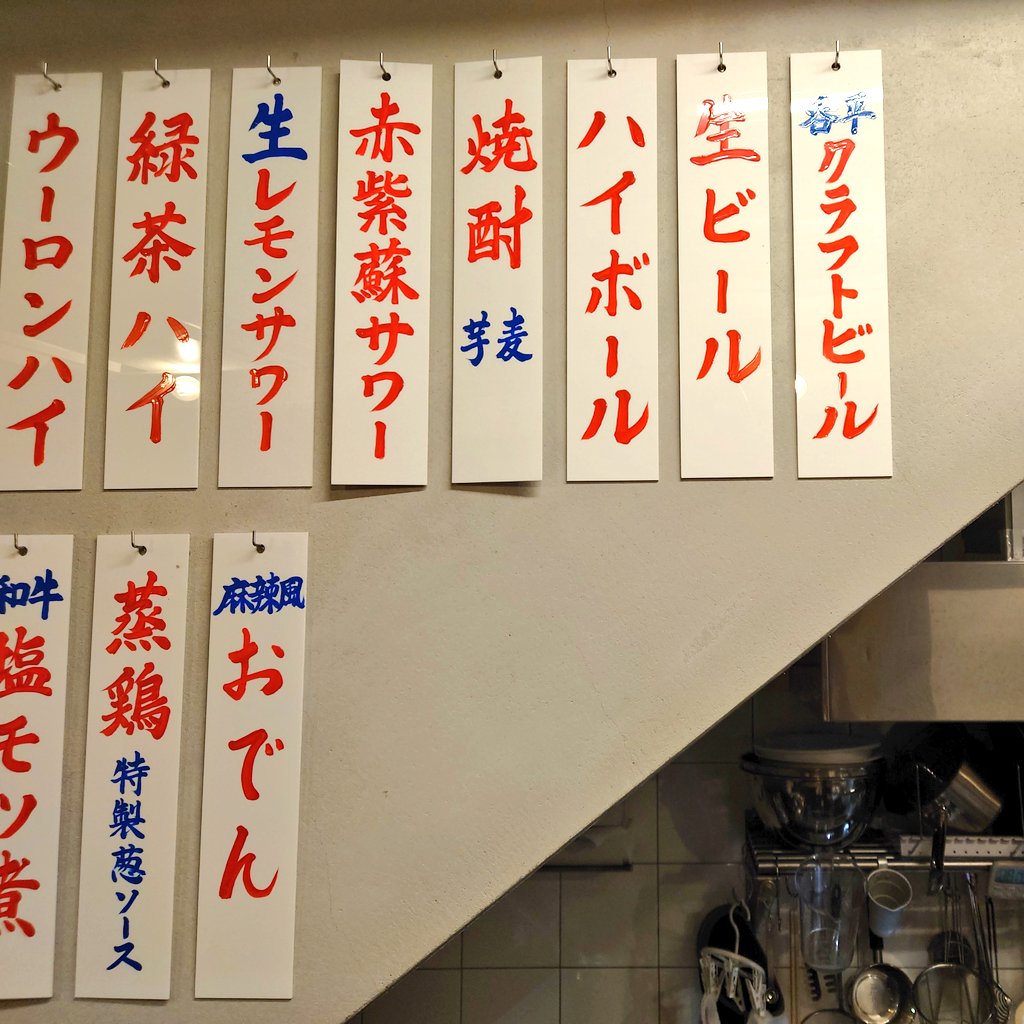 容平
クラフトビール
生ビール
ハイボール
焼酎
芋麦
赤紫蘇サワー
生レモンサワー
緑茶ハイ
ウーロンハイ
麻辣風
おでん
蒸鶏
特製葱ソース
和牛
塩モツ煮